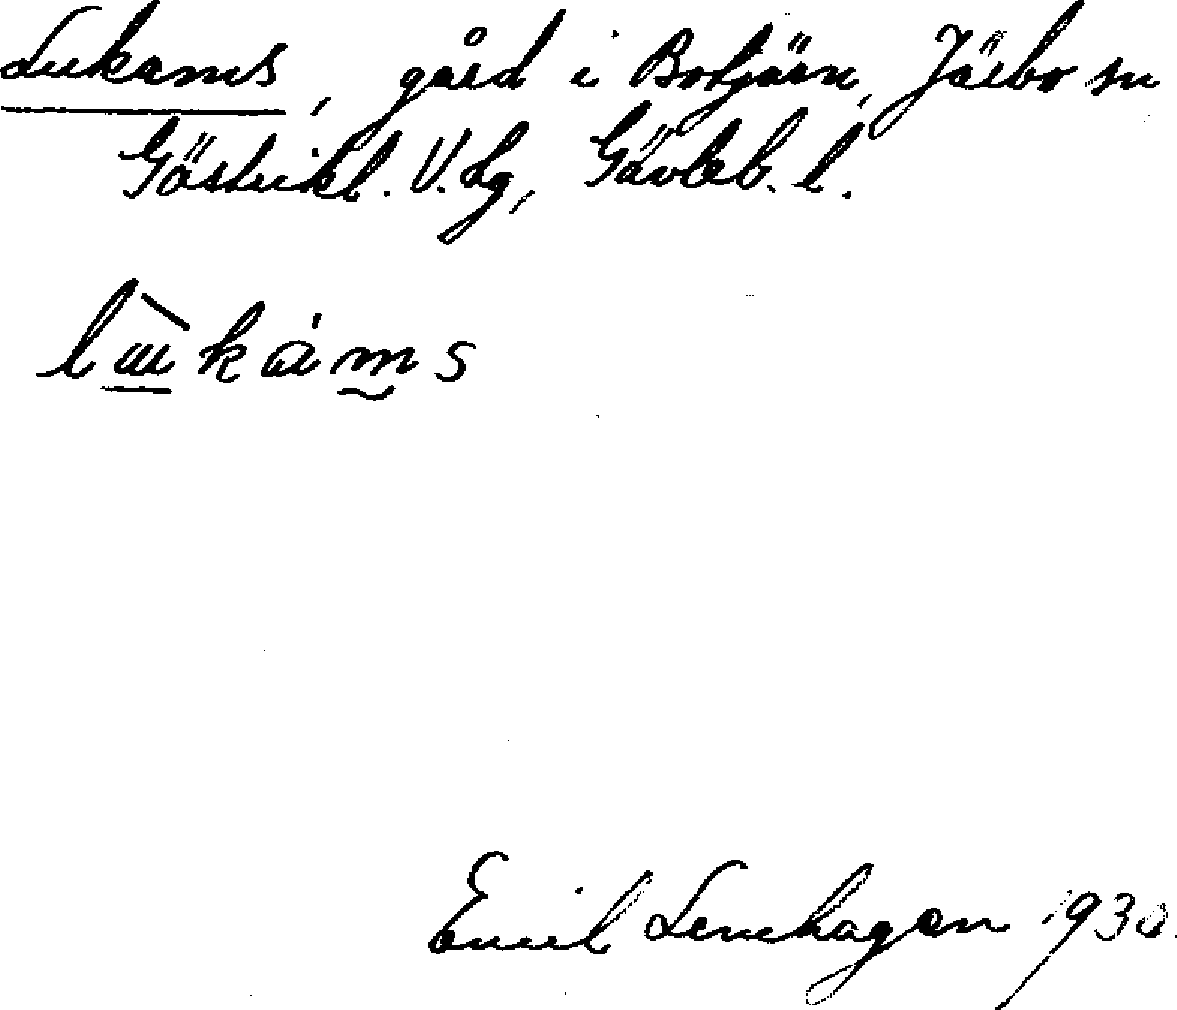 Lukams, gård i Botjärn, Järbo sn
Gästrikl. V. dg, Gävleb. l.
lùkáms
Emil Lenhagen 1930.